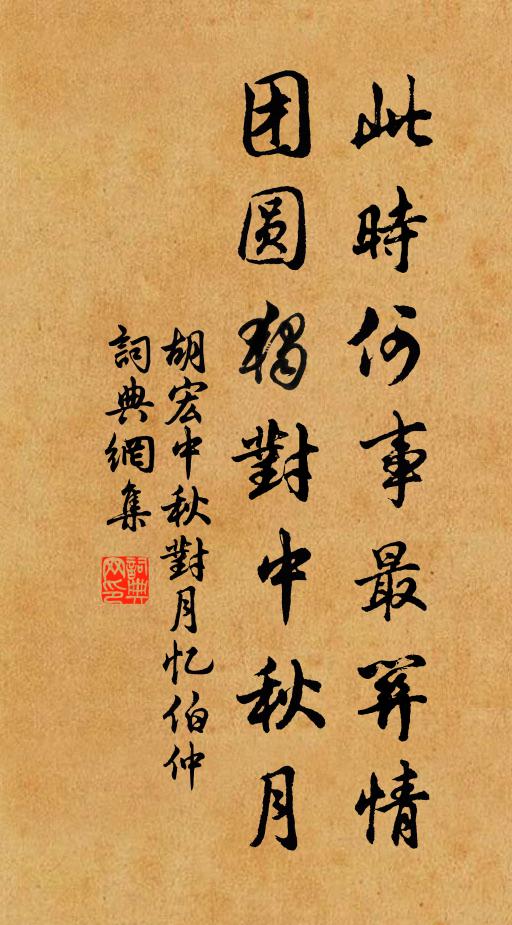 此時何事最關情
团圆獨對中秋月
胡宏中秋對月忆伯仲
詞典網集
詞典网印